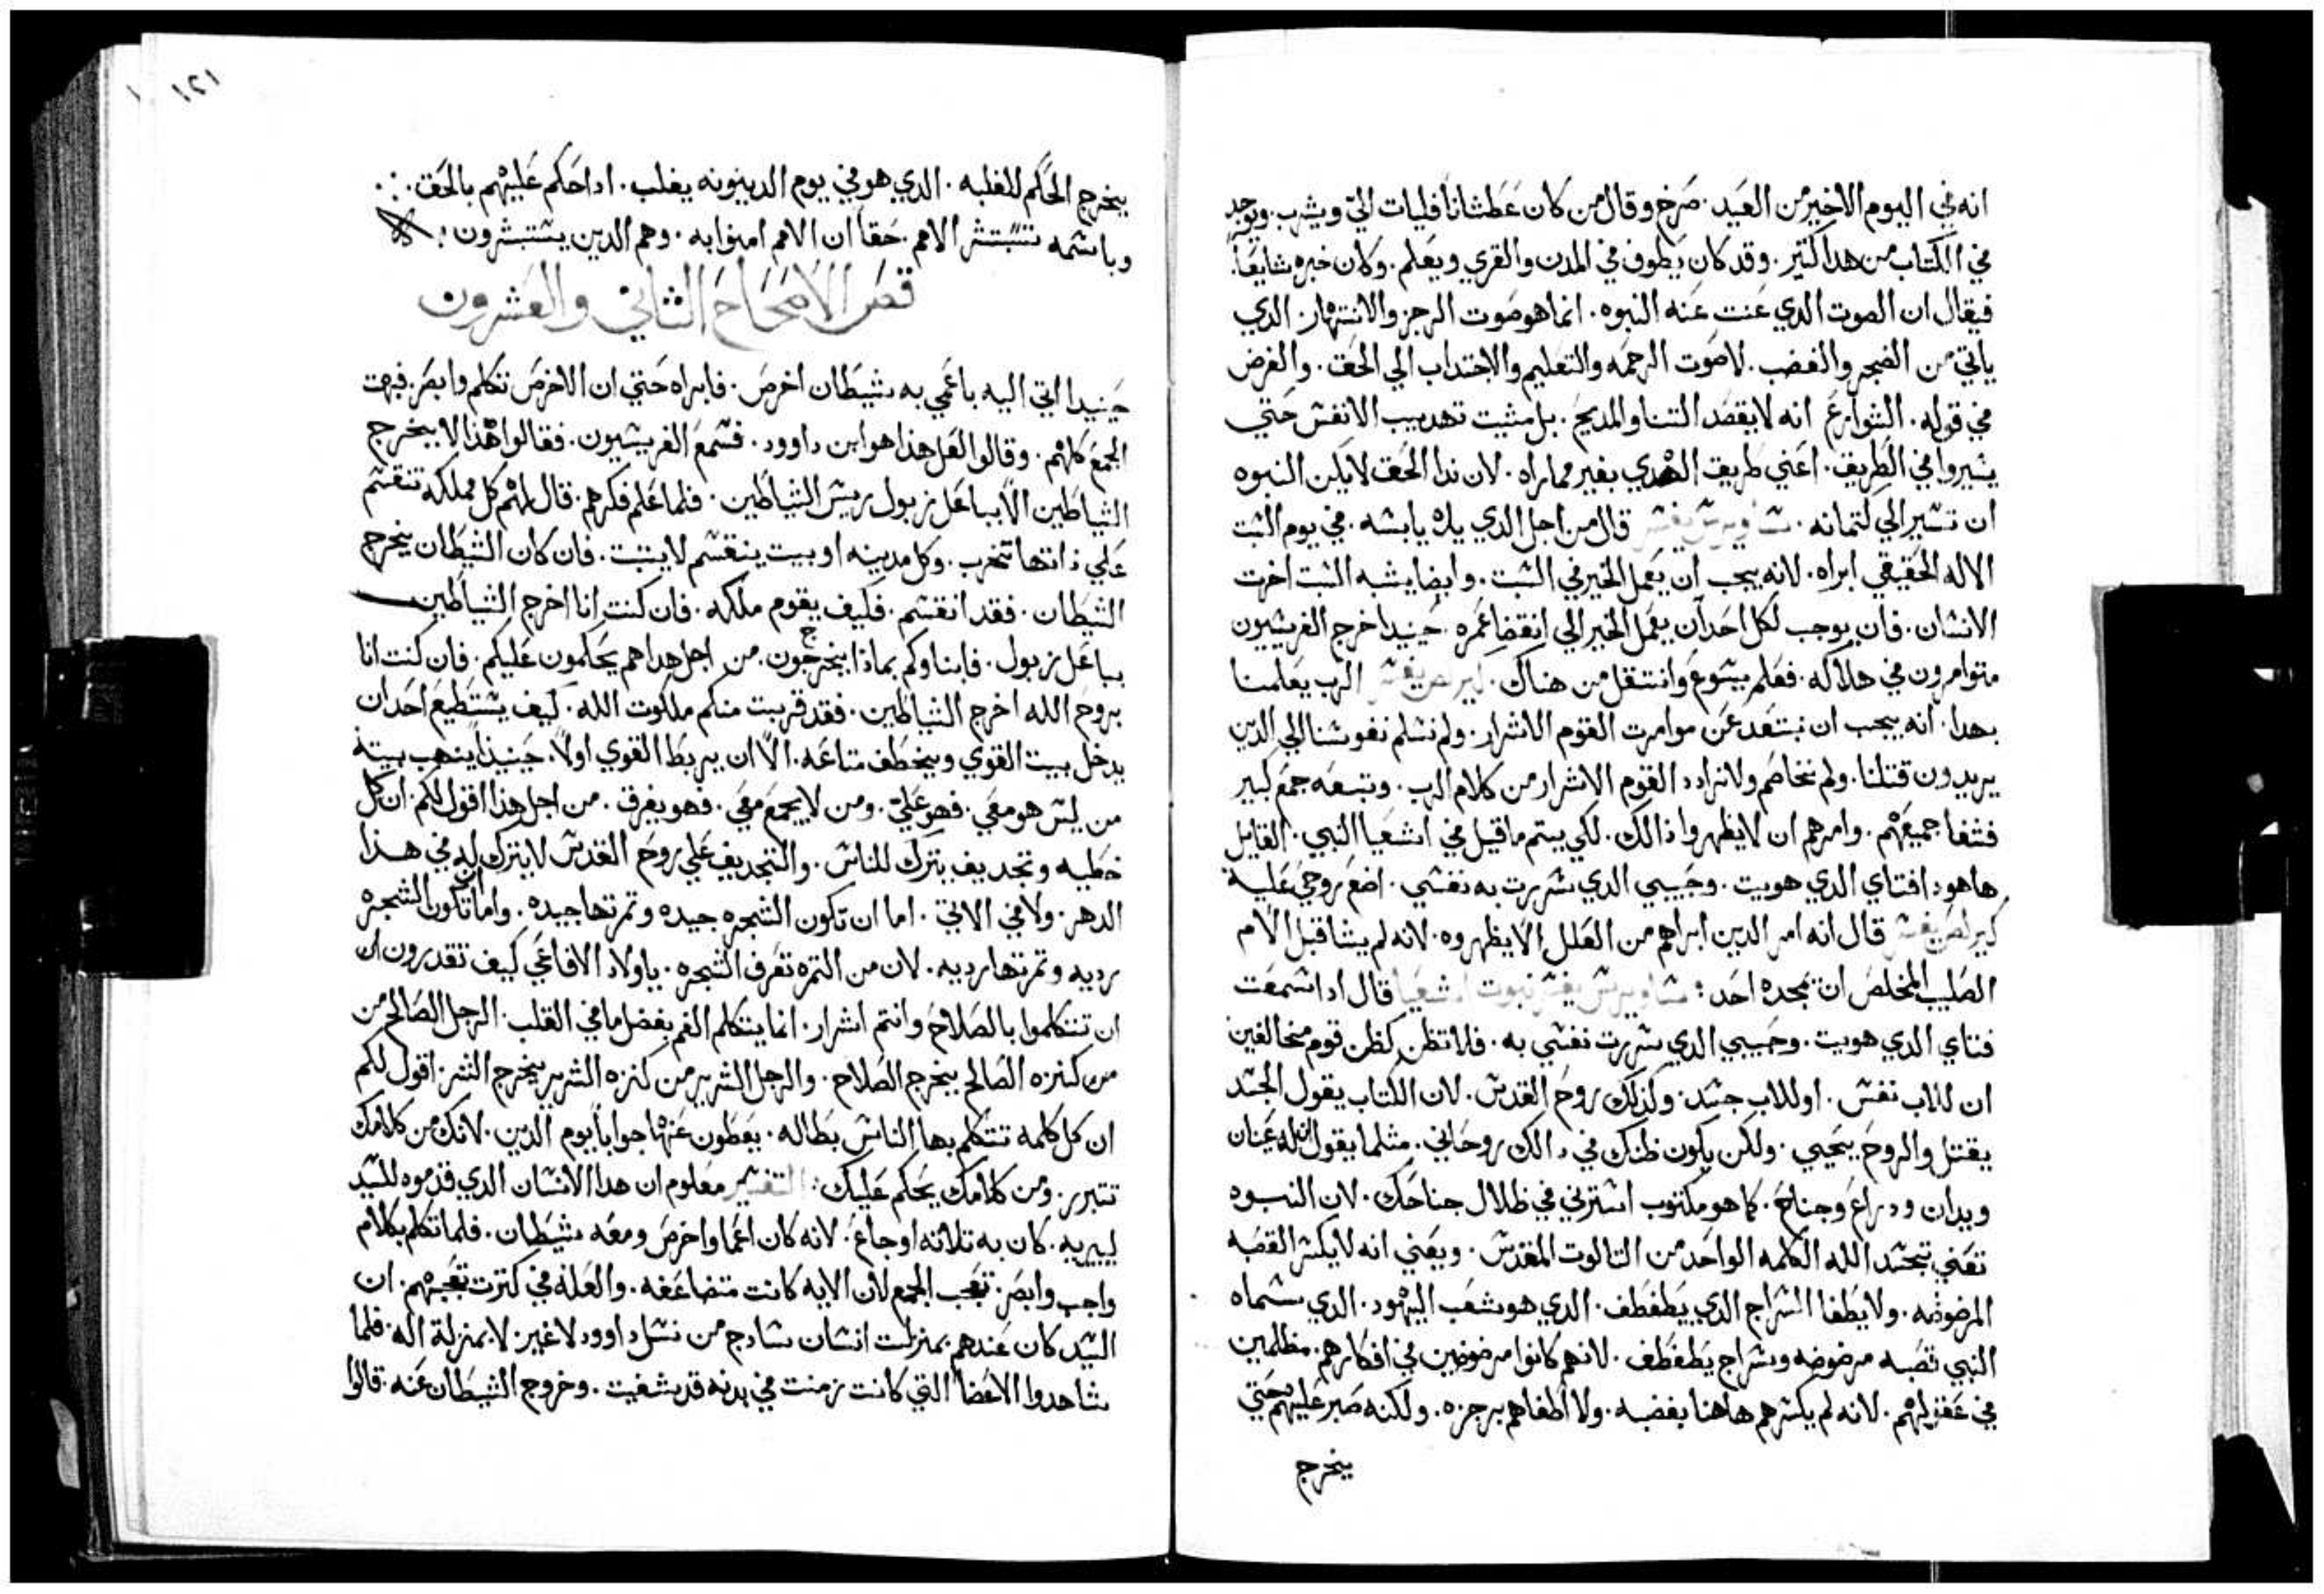 انه في اليوم الاخير من العيد. صرخ وقال من كان عطشانا فليات الي ويشرب. ويوجد
في الكتاب من هدا كتير. وقد كان يطوف في المدن والقري ويعلم. وكان خبره شايعا.
فيقال ان الصوت الدي عنت عنه النبوه. انما هو صوت الرجز والانتهار. الدي
ياتي من الضجر والغضب. لا صوت الرحمه والتعليم والاجتداب الي الحق. والغرض
في قوله. الشوارع انه لا يقصد التنا والمديح. بل مثيت تهديب الانفس حتي
يسيروا في الطريق. اعني طريق الهدي بغير مماراه. لان ندا الحق لا يكن النبوه
ان تشير الي كتمانه. ساويرس يفسر قال من اجل الدي يده يابسه. في يوم السبت
الاله الحقيقي ابراه. لانه يجب ان يعمل الخير في السبت. وايضا يشبه السبت اخرت
الانسان. فان يوجب لكل احد ان يعمل الخير الي انقضا عمره. حينيدا خرج الفريسيون
متوامرون في هلاكه. فعلم يسوع وانتقل من هناك. كيرلس يفسر الرب يعلمنا
بهدا. انه يجب ان نبتعد عن موامرت القوم الاشرار. ولم نسلم نفوسنا الي الدين
يريدون قتلنا. ولم نخاصم ولا نرادد القوم الاشرار من كلام الرب. وتبعه جمع كبير
فشفا جميعهم. وامرهم ان لا يظهروا دالك. لكي يتم ما قيل في اشعيا النبي. القايل
هاهودا فتاي الدي هويت. وحبيبي الدي سررت به نفسي. اضع روحي عليه
كيرلس يفسر قال انه امر الدين ابراهم من العلل الا يظهروه. لانه لم يشا قبل الام
الصليب المخلص ان يمجده احد: ساويرس يفسر نبوت اشعيا قال ادا سمعت
فتاي الدي هويت. وحبيبي الدي سررت نفسي به. فلا تظن كظن قوم مخالفين
ان للاب نفس. او للاب جسد. وكدلك روح القدس. لان الكتاب يقول الجسد
يقتل والروح يحيي. ولكن يكون ظنك في دالك روحاني. مثلما يقول لله عينان
ويدان ودراع وجناح. كما هو مكتوب استرني في ظلال جناحك. لان النبوه
تعني تجسد الله الكلمه الواحد من التالوت المقدس. ويعني انه لا يكسر القصبه
المرضوضه. ولا يطفا السراج الدي يطفطف. الدي هو شعب اليهود. الدي سماه
النبي قصبه مرضوضه وسراج يطفطف. لانهم كانوا مرضوضين في افكارهم. مظلمين
في عقولهم. لانه لم يكسرهم هاهنا بغضبه. ولا اطفاهم برجزه. ولكنه صبر عليهم حتي
يخرج
١٢١
يخرج الحكم للغلبه. الدي هو في يوم الدينونه يغلب. ادا حكم عليهم بالحق.
وباسمه تستبشر الامم. حقا ان الامم امنوا به. وهم الدين يستبشرون:
قص الاصحاح الثاني والعشرون
حينيدا اتي اليه باعمي به شيطان اخرص. فابراه حتي ان الاخرص تكلم وابصر. فبهت
الجمع كلهم. وقالوا لعل هذا هو ابن داوود. فسمع الفريسيون. فقالوا هذا لا يخرج
الشياطين الا بباعل زبول ريس الشياطين. فلما علم فكرهم. قال لهم كل مملكه تنقسم
علي ذاتها تخرب. وكل مدينه او بيت ينقسم لا يتبت. فان كان الشيطان يخرج
الشيطان. فقد انقسم. فكيف يقوم ملكه. فان كنت انا اخرج الشياطين
بباعل زبول. فابناوكم بماذا يخرجون. من اجل هدا هم يحكمون عليكم. فان كنت انا
بروح الله اخرج الشياطين. فقد قربت منكم ملكوت الله. كيف يستطيع احد ان
يدخل بيت القوي ويخطف متاعه. الا ان يربط القوي اولا. حينيدا ينهب بيته
من ليس هو معي. فهو علي. ومن لا يجمع معي. فهو يفرق. من اجل هذا اقول لكم. ان كل
خطيه وتجديف يترك للناس. والتجديف علي روح القدس لا يترك له في هدا
الدهر. ولا في الاتي. اما ان تكون الشجره جيده وتمرتها جيده. واما ان تكون الشجره
رديه وتمرتها رديه. لان من التمره تعرف الشجره. ياولاد الافاعي كيف تقدرون ان
ان تتكلموا بالصلاح وانتم اشرار. انما يتكلم الفم بفضل ما في القلب. الرجل الصالح من
من كنزه الصالح يخرج الصلاح. والرجل الشرير من كنزه الشرير يخرج الشر. اقول لكم
ان كل كلمه تتكلم بها الناس بطاله. يعطون عنها جوابا يوم الدين. لانك من كلامك
تتبرر. ومن كلامك يحكم عليك: التفسير معلوم ان هدا الانسان الدي قدموه للسيد
ليبريه. كان به تلاته اوجاع. لانه كان اعما واخرص ومعه شيطان. فلما تكلم بكلام
واجب وابصر. تعجب الجمع لان الايه كانت متضاعفه. والعله في كترت تعجبهم. ان
السيد كان عندهم بمنزلت انسان سادج من نسل داوود لا غير. لا بمنزلة اله. فلما
شاهدوا الاعضا التي كانت زمنت في بدنه قد شفيت. وخروج الشيطان عنه. قالوا